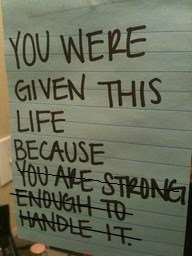 YOU WERE
GIVEN THIS
LIFE
BECAUSE
YOU ARE STRONG
ENOUGH TO
HANDLE IT.